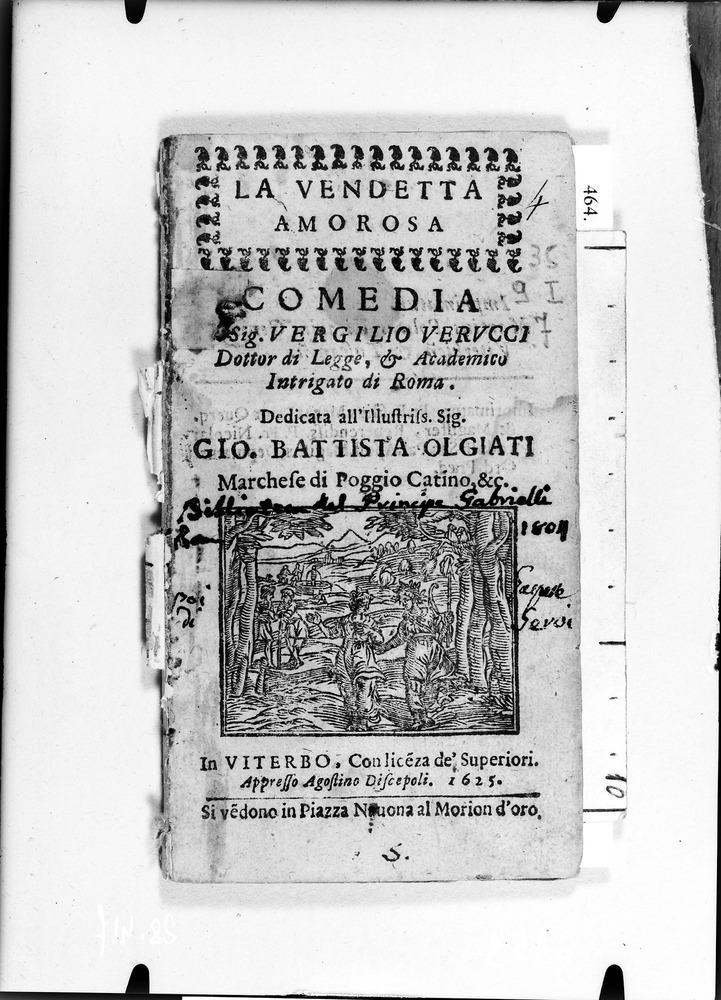 LA VENDETTA
AMOROSA
4
464.
COMEDIA
Sig. VERGILIO VERVCCI
Dottor di Legge, & Academico
Intrigato di Roma.
Dedicata all'Illuſtriſs. Sig.
GIO. BATTISTA OLGIATI
Marcheſe di Poggio Catino, &c.
Biblioteca del Principe Gabrielli
1804
Poi
di
Gaspare
Servi
In VITERBO, Con licẽza de' Superiori.
Appreſſo Agoſtino Diſcepoli. 1625.
Si vẽdono in Piazza Nauona al Morion d'oro.
10
S.